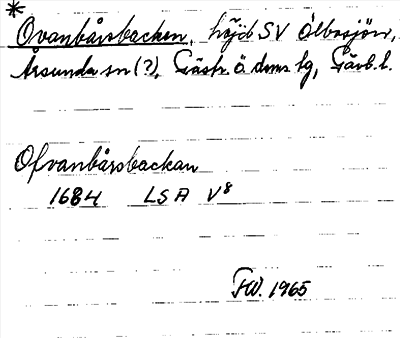 * Ovanbårsbacken, höjd SV Ölbosjön,
Årsunda sn (?), Gästr. ö. doms. tg, Gävb. l.
Ofvanbårsbackan
1684 LSA V8
FW. 1965